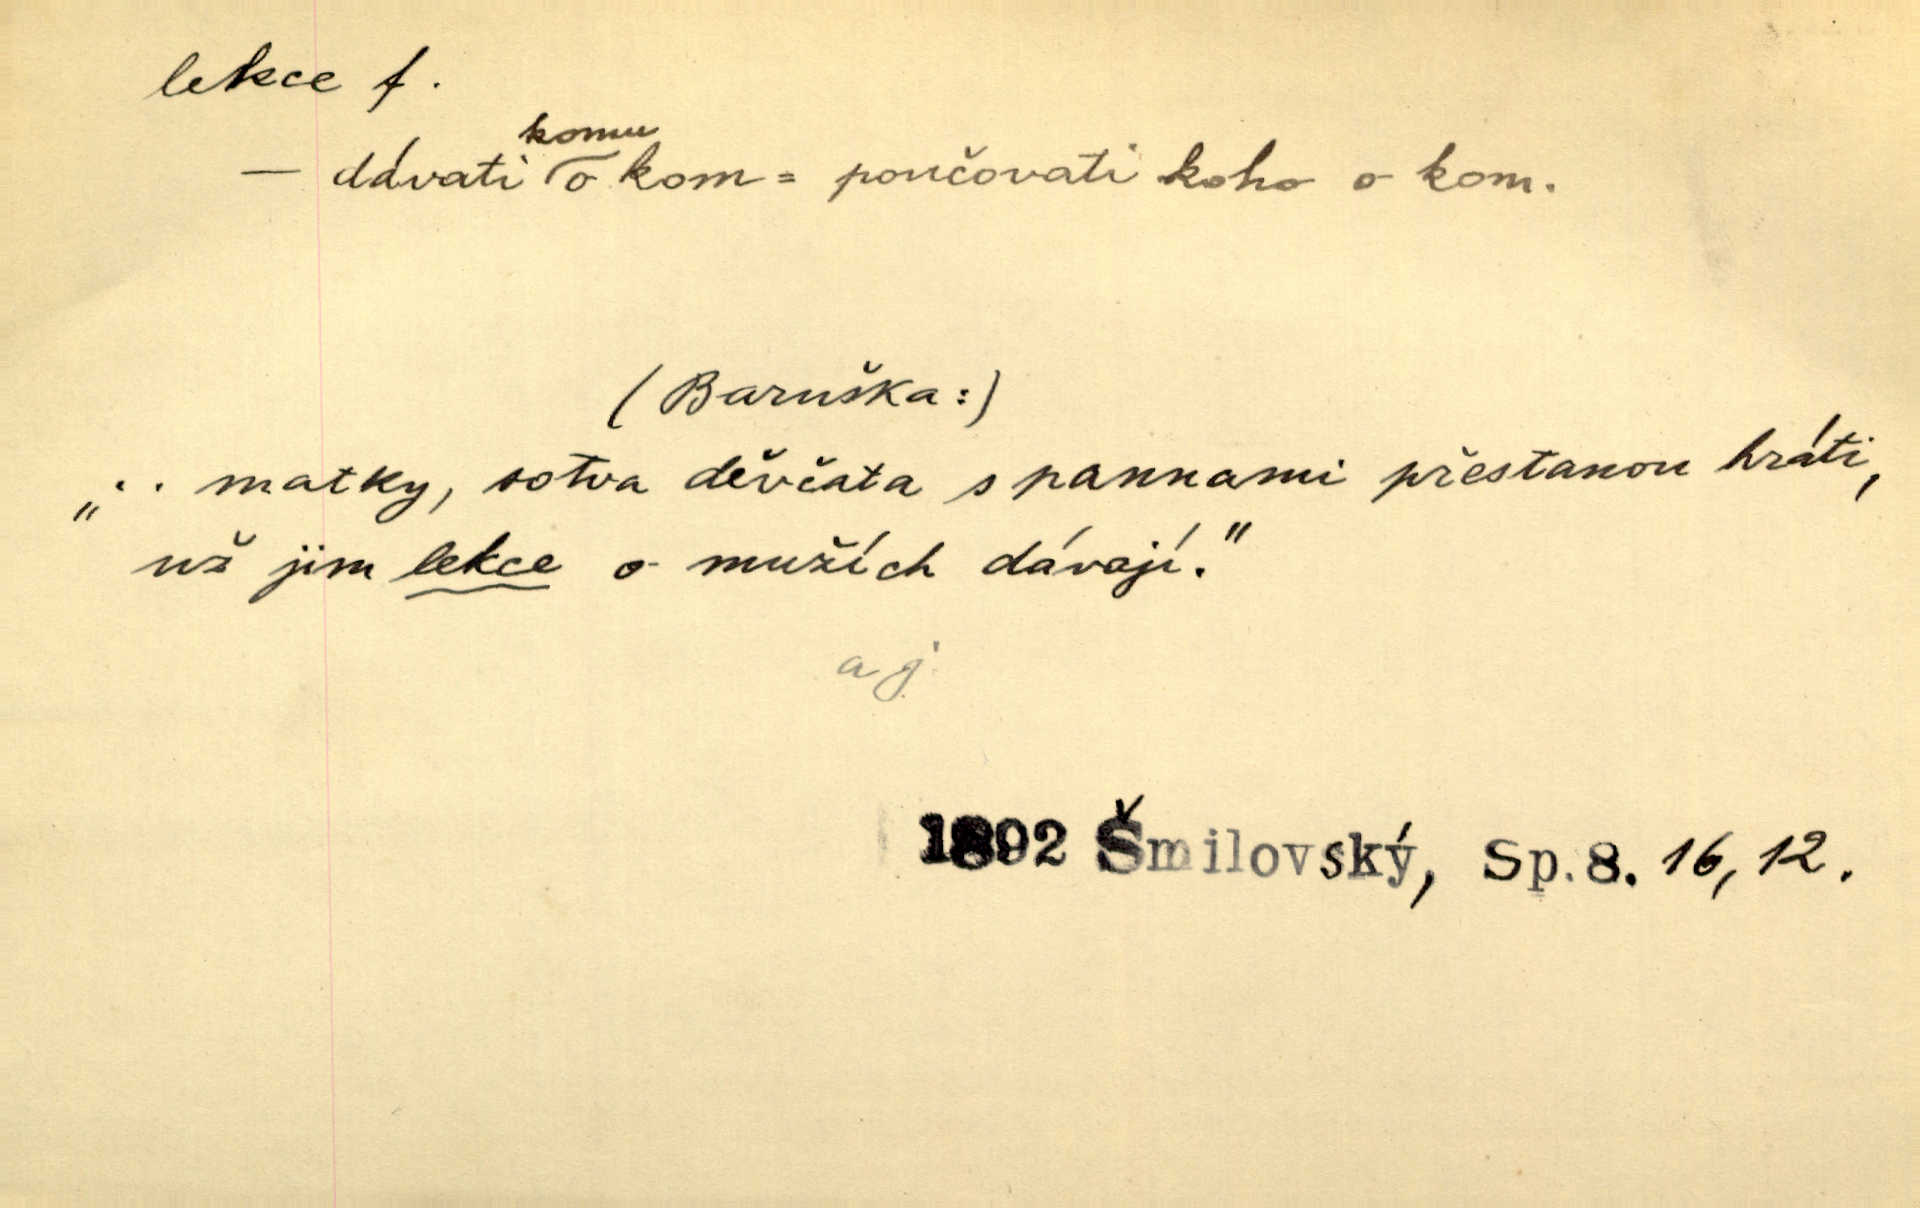 lekce f.
komu
— dávati o kom = poučovati koho o kom.
(Baruška:)
„.. matky, sotva děvčata s pannami přestanou hráti,
už jim lekce o mužích dávají."
a j.
1892 Šmilovský, Sp. 8. 16, 12.